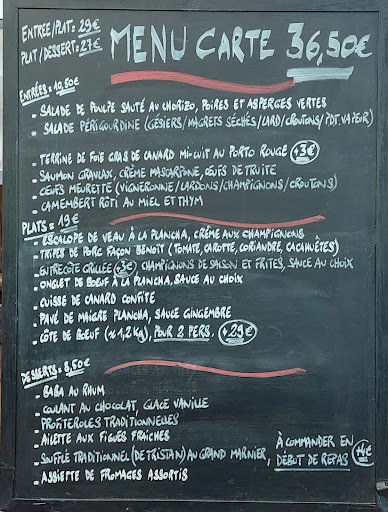 ENTRÉE/PLAT: 29€
PLAT/DESSERT: 27€
MENU CARTE 36,50€
ENTRÉES: 10,50€
- SALADE DE POULPE SAUTÉ AU CHORIZO, POIRES ET ASPERGES VERTES
- SALADE PÉRIGOURDINE (GÉSIERS/MAGRETS SÉCHÉS/LARD/CROUTONS/PDT.VAPEUR)
- TERRINE DE FOIE GRAS DE CANARD MI-CUIT AU PORTO ROUGE +3€
- SAUMON GRAVLAX, CRÈME MASCARPONE, OEUFS DE TRUITE
- OEUFS MEURETTE (VIGNERONNE/LARDONS/CHAMPIGNONS/CROUTONS)
- CAMEMBERT RÔTI AU MIEL ET THYM
PLATS: 19€
- ESCALOPE DE VEAU À LA PLANCHA, CRÈME AUX CHAMPIGNONS
- TRIPES DE PORC FAÇON BENOÎT (TOMATE, CAROTTE, CORIANDRE, CACAHUÈTES)
- ENTRECÔTE GRILLÉE +3€ CHAMPIGNONS DE SAISON ET FRITES, SAUCE AU CHOIX
- ONGLET DE BOEUF À LA PLANCHA, SAUCE AU CHOIX
- CUISSE DE CANARD CONFITE
- PAVÉ DE MAIGRE PLANCHA, SAUCE GINGEMBRE
- CÔTE DE BOEUF (≈ 1,2 kg), POUR 2 PERS. +29€
DESSERTS: 8,50€
- BABA AU RHUM
- COULANT AU CHOCOLAT, GLACE VANILLE
- PROFITEROLES TRADITIONNELLES
- AILETTE AUX FIGUES FRAICHES
- SOUFFLÉ TRADITIONNEL (DE TRISTAN) AU GRAND MARNIER, À COMMANDER EN DÉBUT DE REPAS +4€
- ASSIETTE DE FROMAGES ASSORTIS